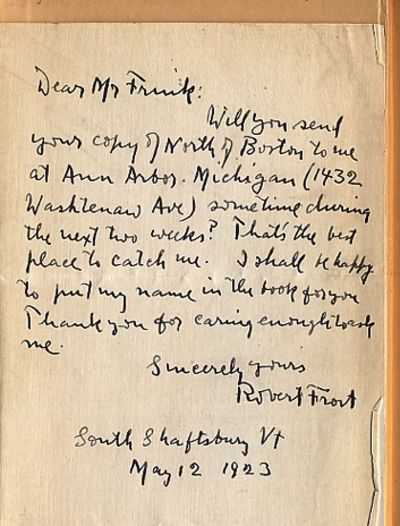 Dear Mr Frink:
Will you send
your copy of North of Boston to me
at Ann Arbor. Michigan (1432
Washtenaw Ave) sometime during
the next two weeks? That's the best
place to catch me. I shall be happy
to put my name in the book for you
Thank you for caring enough to ask
me.
Sincerely yours
Robert Frost
South Shaftsbury Vt
May 12 1923